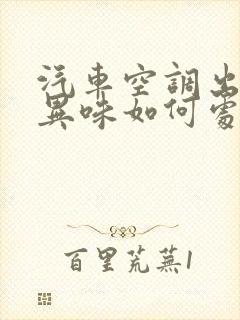 汽車空調出
異味如何處
百里荒蕪1